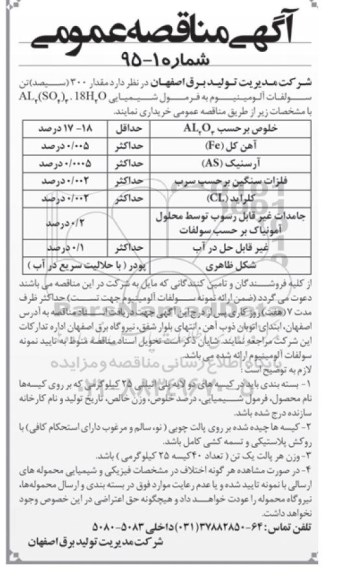 آگهی مناقصه عمومی
شماره ۱-۹۵
شرکت مدیریت تولید برق اصفهان در نظر دارد مقدار ۳۰۰ (سیصد) تن
سولفات آلومینیوم به فرمول شیمیایی AL۲(SO۴)۳ . 18H۲O
با مشخصات زیر از طریق مناقصه عمومی خریداری نماید.
خلوص بر حسب AL۲O۳ حداقل ۱۸- ۱۷ درصد
آهن کل (Fe) حداکثر ۰/۰۰۵ درصد
آرسنیک (AS) حداکثر ۰/۰۰۰۵ درصد
فلزات سنگین بر حسب سرب حداکثر ۰/۰۰۲ درصد
کلراید (CL) حداکثر ۰/۰۰۲ درصد
جامدات غیر قابل رسوب توسط محلول آمونیاک بر حسب سولفات ۰/۲ درصد
غیر قابل حل در آب حداکثر ۰/۱ درصد
شکل ظاهری پودر ( با حلالیت سریع در آب )
از کلیه فروشندگان و تامین کنندگانی که مایل به شرکت در این مناقصه می باشند
دعوت می گردد (ضمن ارائه نمونه سولفات آلومینیوم جهت تست) حداکثر ظرف
مدت ۷ (هفت) روز کاری پس از درج این آگهی جهت دریافت اسناد مناقصه به آدرس
اصفهان، ابتدای اتوبان ذوب آهن ، انتهای بلوار شفق، نیروگاه برق اصفهان اداره تدارکات
این شرکت مراجعه نمایند. شایان ذکر است تحویل اسناد مناقصه منوط به تایید نمونه
سولفات آلومینیوم ارائه شده می باشد.
لازم به توضیح است :
۱- بسته بندی باید در کیسه های دو لایه پلی اتیلنی ۲۵ کیلوگرمی که بر روی کیسه‌ها
نام محصول، فرمول شیمیایی، درصد خلوص، وزن خالص، تاریخ تولید و نام کارخانه
سازنده درج شده باشد.
۲- کیسه ها چیده شده بر روی پالت چوبی ( نو، سالم و مرغوب دارای استحکام کافی) با
روکش پلاستیکی و تسمه کشی کامل باشد.
۳- وزن هر پالت یک تن ( تعداد ۴۰ کیسه ۲۵ کیلوگرمی ) باشد.
۴- در صورت مشاهده هر گونه اختلاف در مشخصات فیزیکی و شیمیایی محموله های
ارسالی با نمونه تایید شده و یا عدم رعایت موارد فوق در بسته بندی و ارسال محموله‌ها،
نیروگاه محموله را عودت خواهد داد و هیچگونه حق اعتراضی در این خصوص وجود
نخواهد داشت.
تلفن تماس : ۶۴-۳۷۸۸۲۸۵۰ (۰۳۱) داخلی ۵۰۸۳-۵۰۸۰
شرکت مدیریت تولید برق اصفهان